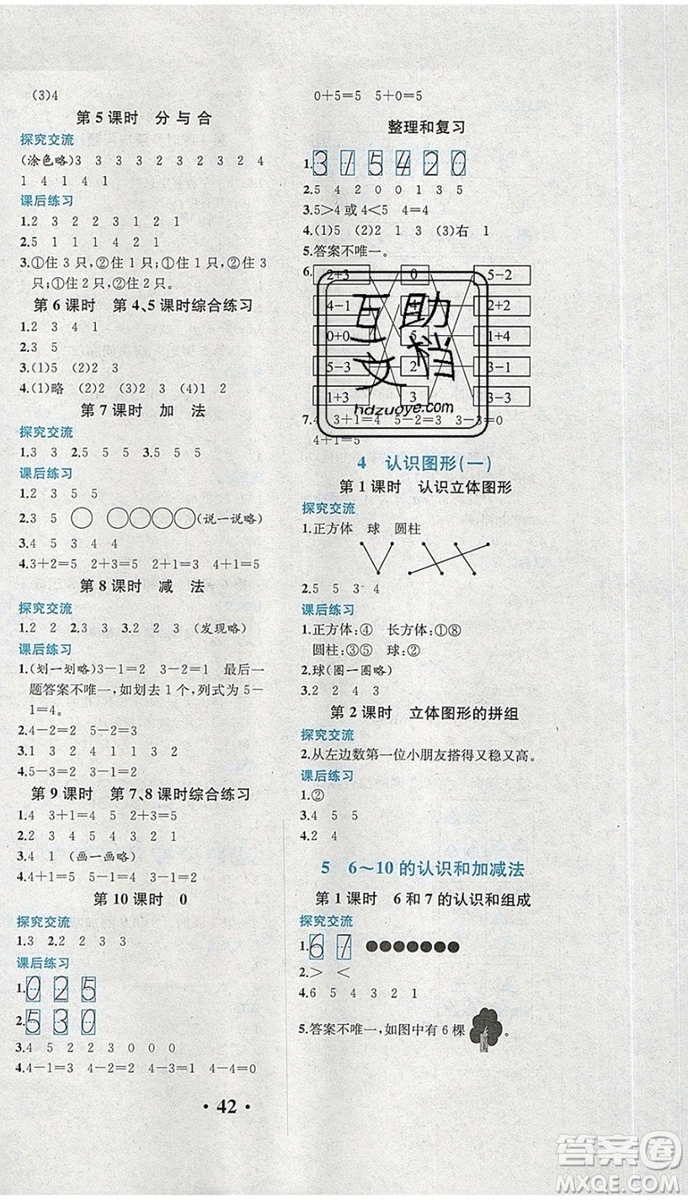 (3)4
第5课时 分与合
探究交流
(涂色略)3 3 3 3 2 3 2 3 2 4
1 4 1 4 1
课后练习
1.2 3 2 2 3 1 2 1
2.5 1 1 1 4 2 1
3.①住3只;①住1只;①住2只;
①住2只。
第6课时 第4、5课时综合练习
1.2 3 4 1
2.3 5
4.(1)略 (2)2 (3)3
第7课时 加法
探究交流
1.3 3 2.5 5 5 3.5 5 5
课后练习
1.2 3 5 5
2.3 5 (说一说略)
3.4 5 3 4 4
4.3+2=5 2+1=3 4+1=5
第8课时 减法
探究交流
1.2 2 2.3 2 3.2 2 3 (发现略)
课后练习
1.(划一划略)3-1=2 3-2=1 最后一
题答案不唯一,如划去1个,列式为5-
1=4。
2.4-2=2 5-2=3
3.2 3 2 4 1 0 1
4.5-3=2 3-2=1
第9课时 第7、8课时综合练习
1.4 3+1=4 5 2+3=5
2.4 5 2 3 4 2
3.4 1 (画一画略)
4.2+3=5 5-4=1 3-1=2
第10课时 0
探究交流
1.3 2.2 2 3 3
课后练习
1.0 2 5
2.5 3 0
3.4 5 2 2 3 0 0 0
4.4-1=3 4-2=2 4-3=1 4-4=0
• 42 •
0+5=5 5+0=5
整理和复习
1.3 1 5 4 2 0
2.5 4 2 0 0 1 3 5
3.5>4或4<5 4=4
4.(1)5 (2)2 1 3 (3)右 1
5.答案不唯一。
6.
2+3 0 5-2
4-1 4 2-1
0+0 5 1+4
5-3 2 4-0
1+3 3 3-3
7.4 3+1=4 5-2=3 3-3=0
4+1=5
4 认识图形(一)
第1课时 认识立体图形
探究交流
1.正方体 球 圆柱
2.5 5 3 4
课后练习
1.正方体:④ 长方体:①⑧
圆柱:③⑤ 球:②
2.球(圈一圈略)
3.2 2 4 3
第2课时 立体图形的拼组
探究交流
2.从左边数第一位小朋友搭得又稳又高。
课后练习
1.②
3.4 5 5
4.2 4
5 6~10的认识和加减法
第1课时 6和7的认识和组成
探究交流
1.6 7
2.> <
4.6 5 4 3 2 1
5.答案不唯一,如图中有6棵。
互助
文档
hdzuoye.com
答案圈
MXQE.COM